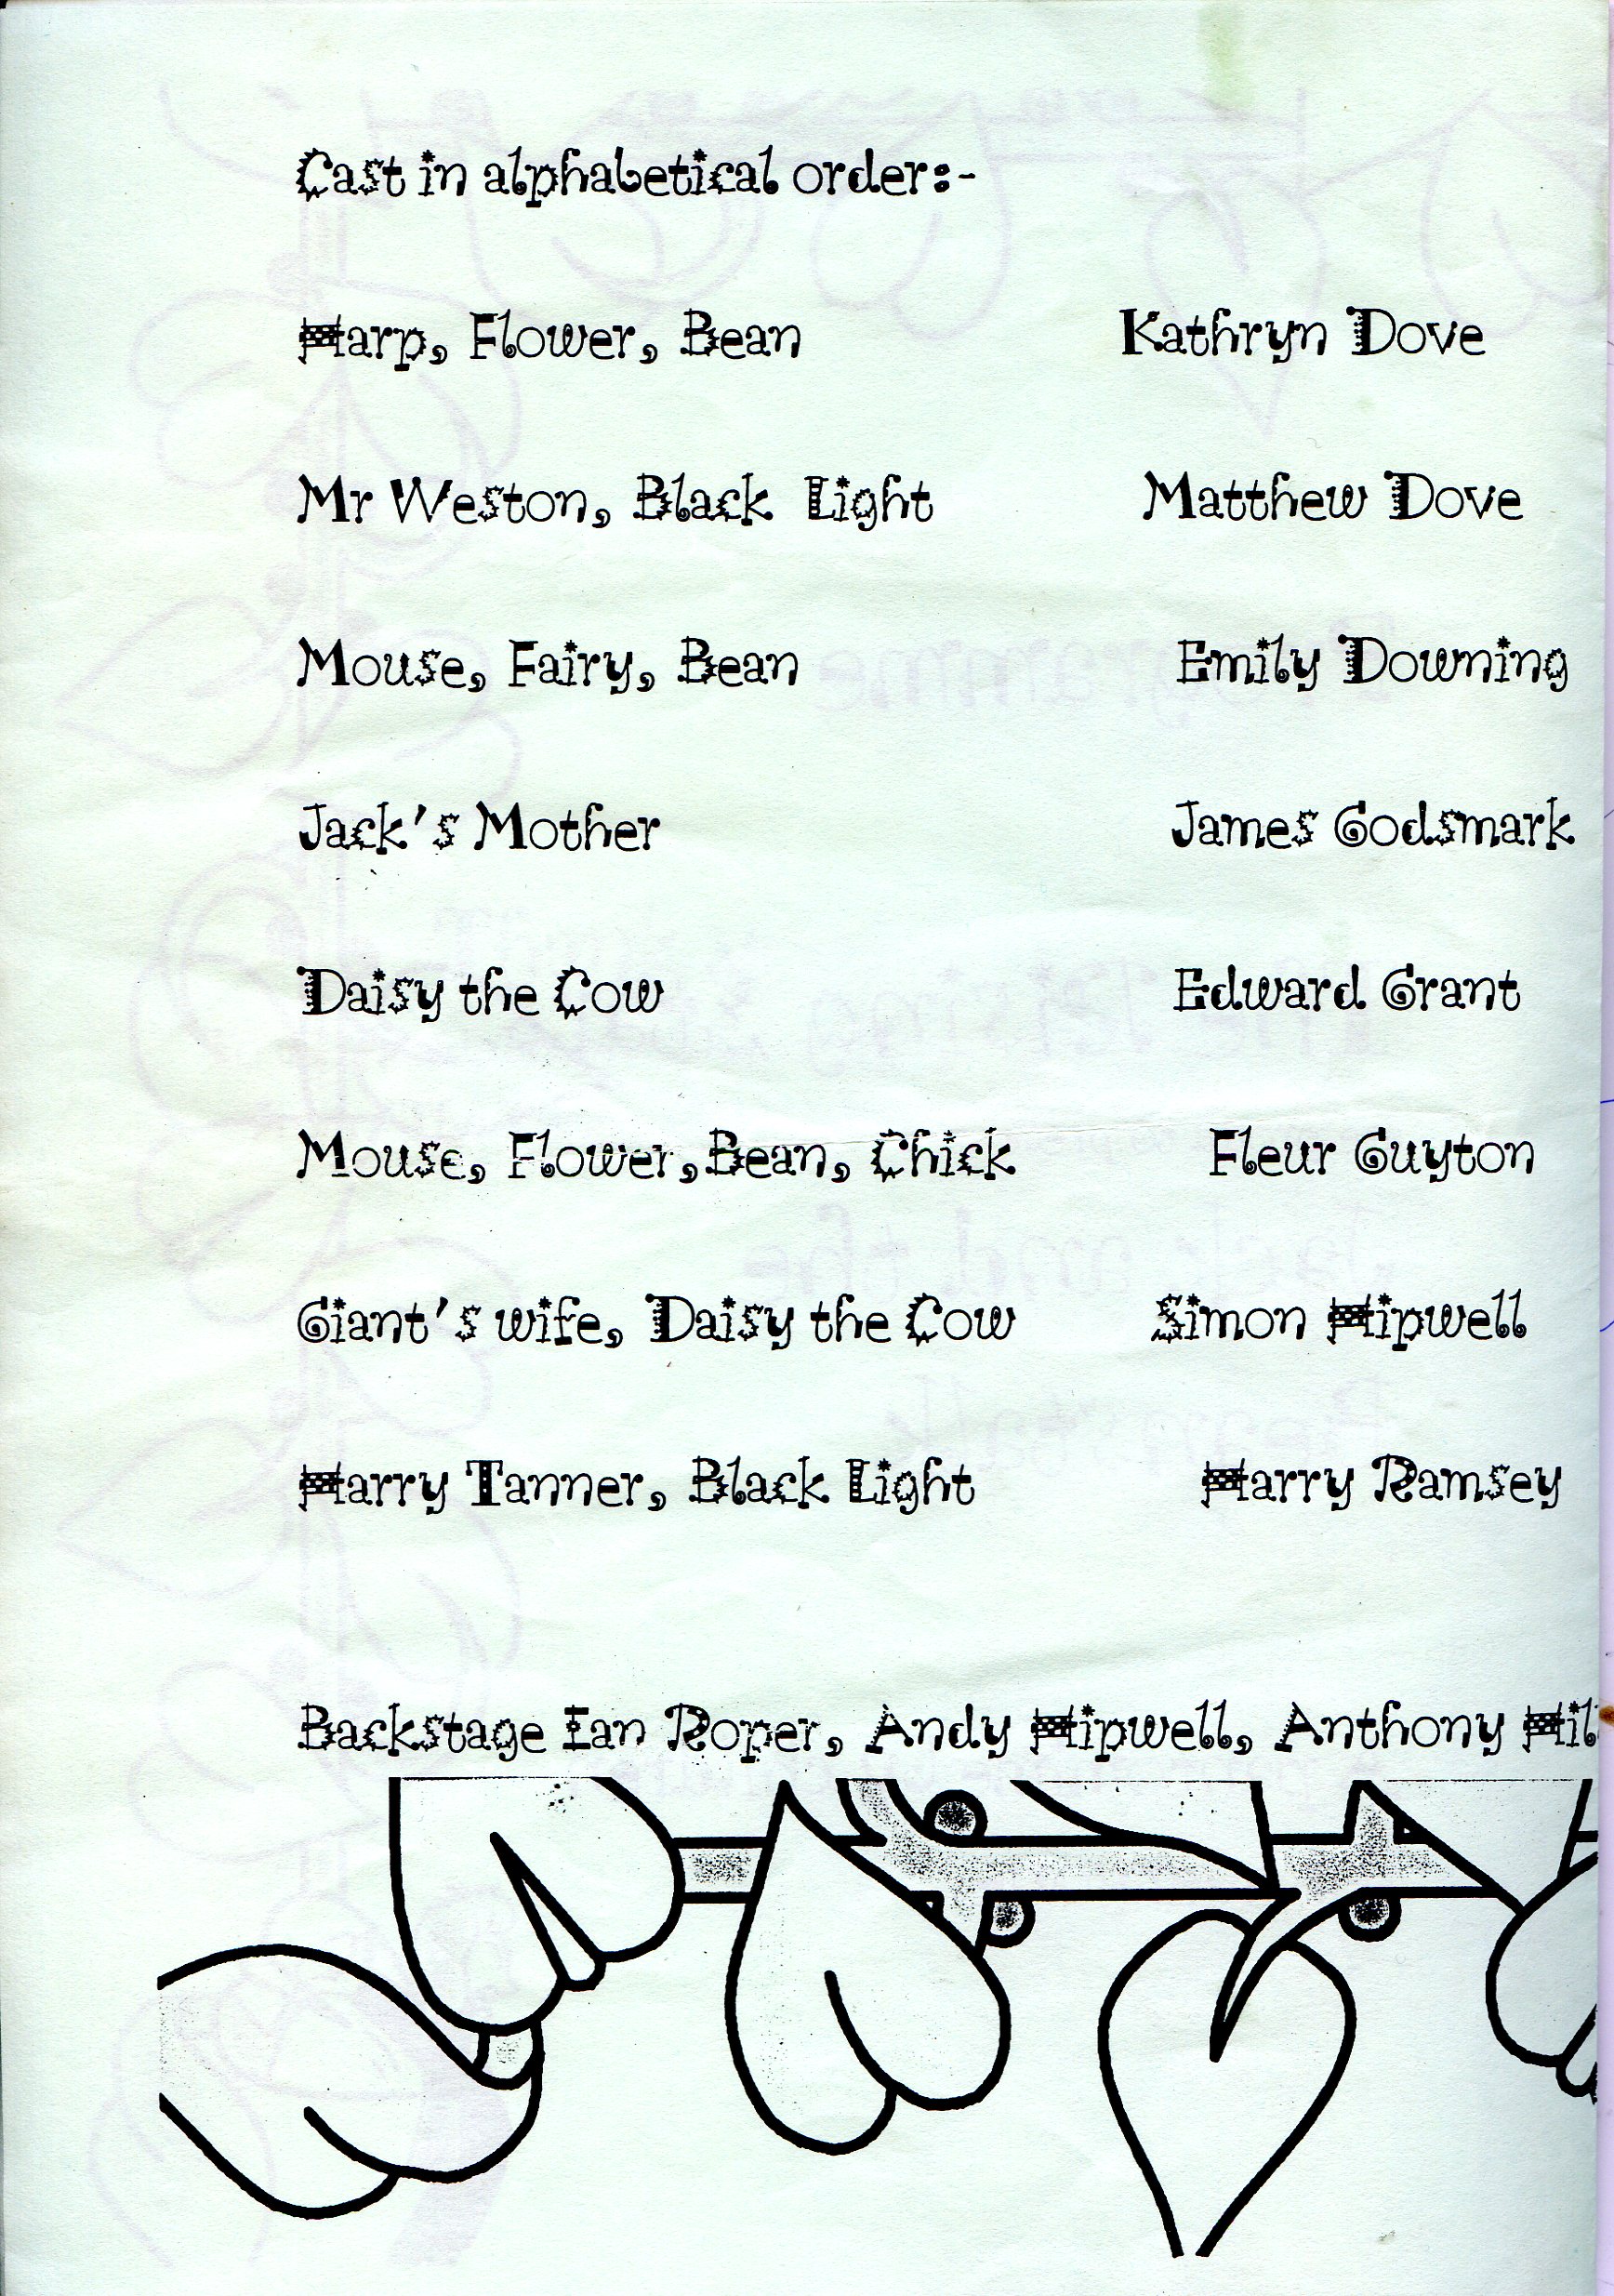 Cast in alphabetical order:-
Harp, Flower, Bean Kathryn Dove
Mr Weston, Black Light Matthew Dove
Mouse, Fairy, Bean Emily Downing
Jack's Mother James Godsmark
Daisy the Cow Edward Grant
Mouse, Flower, Bean, Chick Fleur Guyton
Giant's wife, Daisy the Cow Simon Hipwell
Harry Tanner, Black Light Harry Ramsey
Backstage Ian Roper, Andy Hipwell, Anthony